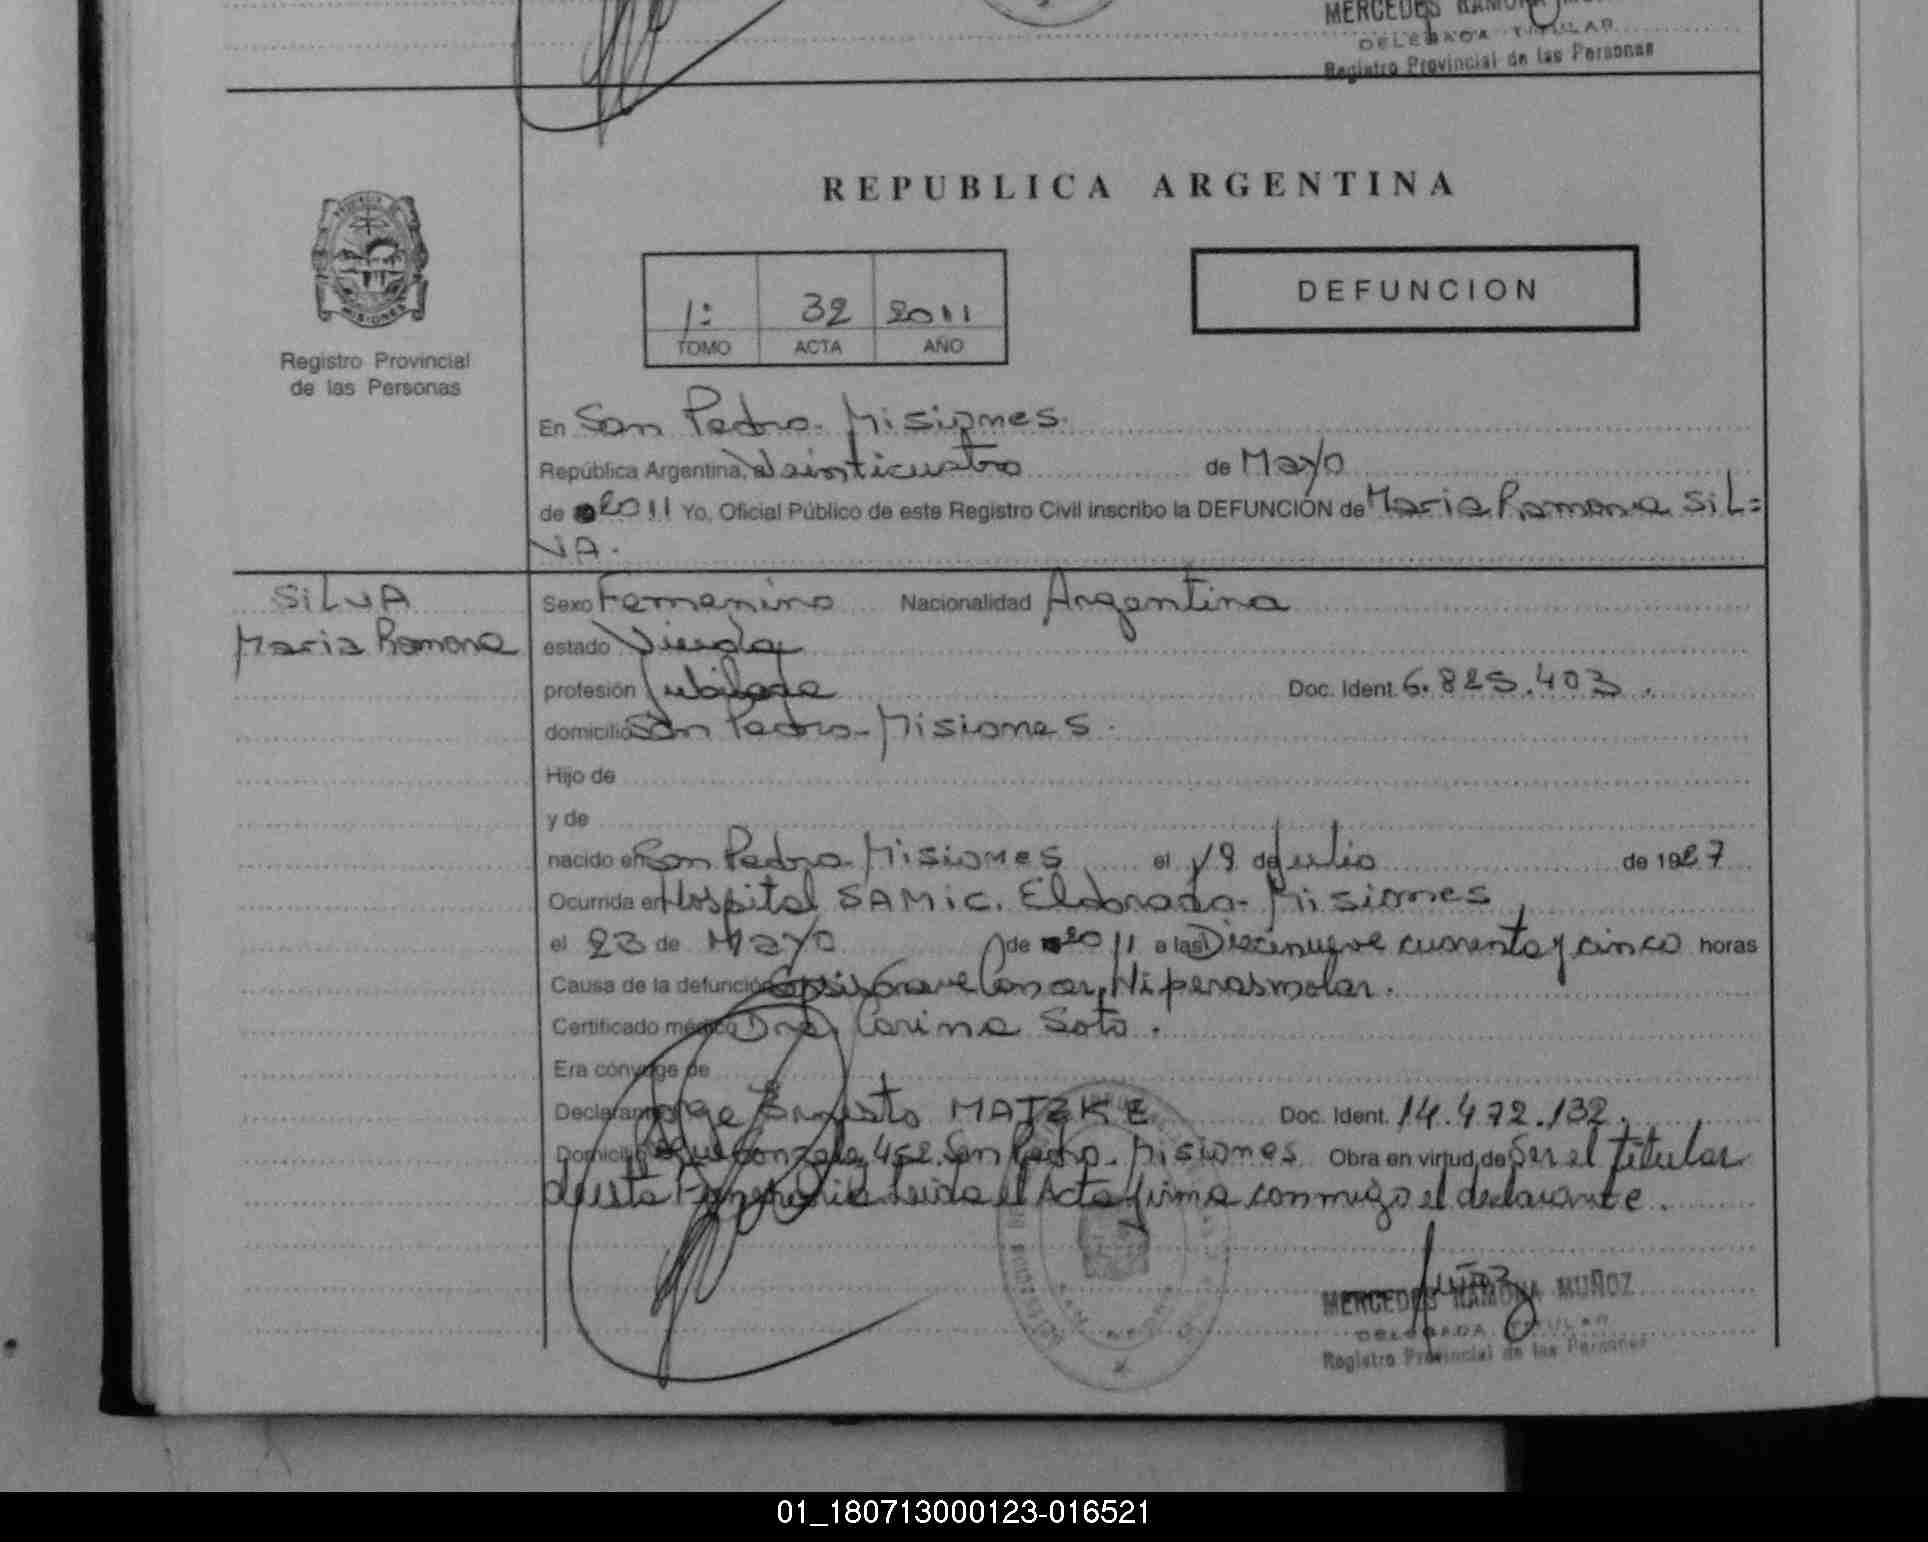 MERCEDES RAMONA
DELEGADA TITULAR
Registro Provincial de las Personas
REPUBLICA ARGENTINA
PROVINCIA
MISIONES
Registro Provincial
de las Personas
1: 32 2011
TOMO ACTA AÑO
DEFUNCION
En San Pedro - Misiones.
República Argentina, a Veinticuatro de Mayo
de 2011 Yo, Oficial Público de este Registro Civil inscribo la DEFUNCIÓN de Maria Ramona SiL=
VA.
SiLVA
Maria Ramona
Sexo Femenino Nacionalidad Argentina
estado Viuda
profesión Jubilada Doc. Ident. 6.825.403.
domicilio San Pedro - Misiones.
Hijo de
y de
nacido en San Pedro - Misiones el 19 de Julio de 1927
Ocurrida en Hospital SAMiC. Eldorado - Misiones
el 23 de Mayo de 2011 a las Diecinueve cuarenta y cinco horas
Causa de la defunción Grave Cancer
Certificado médico Dra. Carina Soto.
Era cónyuge de
Declarante Jorge Ernesto MATZKE Doc. Ident. 14.472.132.
Domicilio 452. San Pedro - Misiones Obra en virtud de Ser el titular
de esta Funeraria Leida el Acta firma conmigo el declarante.
Muñoz
MERCEDES RAMONA MUÑOZ
DELEGADA TITULAR
Registro Provincial de las Personas
01_180713000123-016521